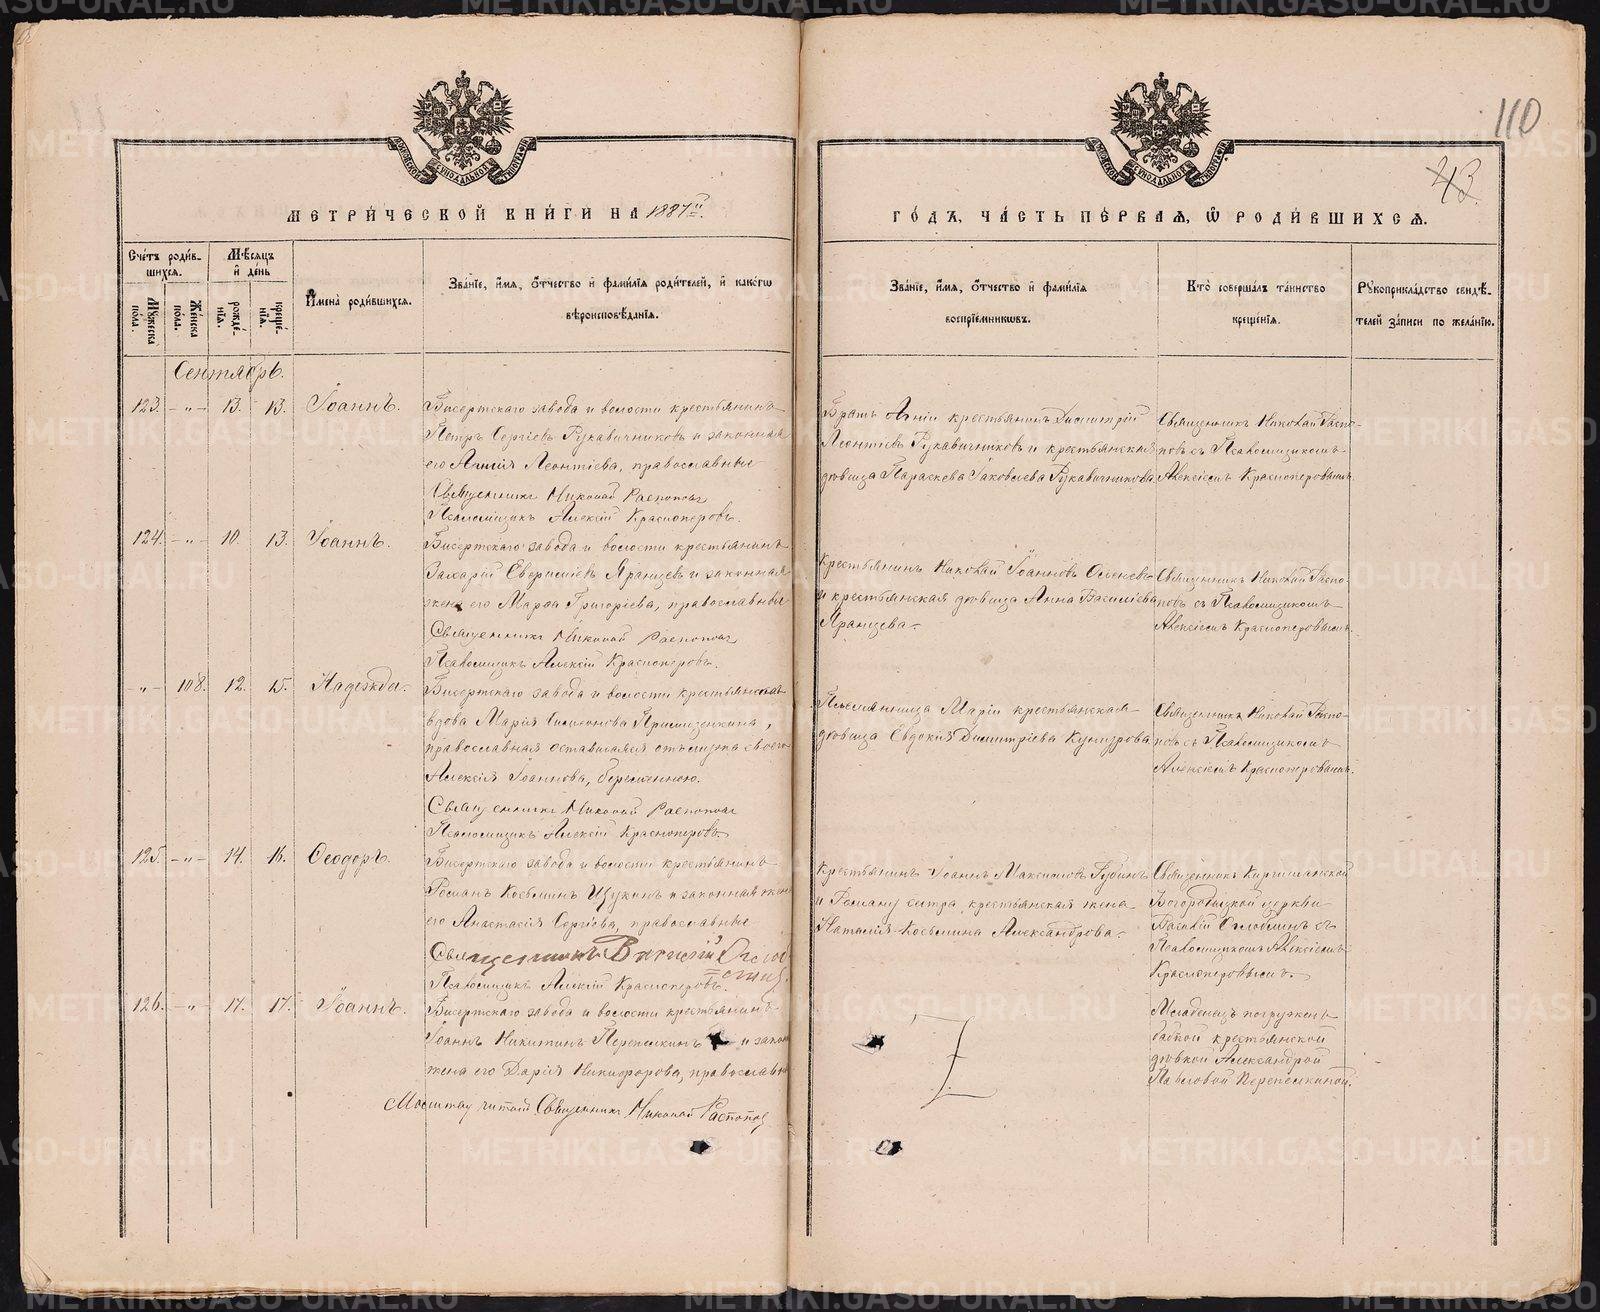 110
43.
МЕТРИ́ЧЕСКОЙ КНИ́ГИ НА 1887й.
ГО́ДЪ, ЧА́СТЬ ПЕ́РВАЯ, Ѽ РОДИ́ВШИХСЯ.
Сче́тъ роди́в-
шихся.
Мꙋ́жеска пола.
Же́нска пола.
Мѣ́сяцъ и́ де́нь
рожде́нїя.
креще́нїя.
И҆мена̀ роди́вшихся.
Зва́нїе, и҆́мя, о҆́тчество и҆ фами́лїя роди́телей, и҆ како́гѡ
вѣроисповѣ́данїя.
Зва́нїе, и҆́мя, о҆́тчество и҆ фами́лїя
воспрїе́мникѡвъ.
Кто̀ соверша́лъ та́инство
креще́нїя.
Рꙋкоприкла́дство свидѣ́-
телей за́писи по жела́нїю.
Сентябрь.
123. -"- 13. 13. Іоаннъ.
Бисертскаго завода и волости крестьянинъ
Петръ Сергіевъ Рукавичниковъ и законная
его Леонтіева, православные
Священникъ Николай Распоповъ
Псаломщикъ Алексій Красноперовъ.
Братъ крестьянинъ Димитрій
Леонтіевъ Рукавичниковъ и крестьянская
дѣвица Параскева Іаковлева Рукавичникова
Священникъ Николай Распо-
повъ съ Псаломщикомъ
Алексіемъ Красноперовымъ.
124. -"- 10. 13. Іоаннъ.
Бисертскаго завода и волости крестьянинъ
Захарій Яранцевъ и законная
жена его Марѳа Григоріева, православные
Священникъ Николай Распоповъ
Псаломщикъ Алексій Красноперовъ.
Крестьянинъ Николай Іоанновъ
и крестьянская дѣвица Анна Василіева
Яранцева.
Священникъ Николай Распо-
повъ съ Псаломщикомъ
Алексіемъ Красноперовымъ.
-"- 108. 12. 15. Надежда.
Бисертскаго завода и волости крестьянская
вдова Марія Симеонова
православная оставшаяся отъ мужа своего
Алексія Іоаннова, беременною.
Священникъ Николай Распоповъ
Псаломщикъ Алексій Красноперовъ
Племянница Маріи крестьянская
дѣвица Евдокія Димитріева
Священникъ Николай Распо-
повъ съ Псаломщикомъ
Алексіемъ Красноперовымъ.
125. -"- 14. 16. Ѳеодоръ.
Бисертскаго завода и волости крестьянинъ
Романъ Косьминъ Щукинъ и законная жена
его Анастасія Сергіева, православные
Священникъ
Псаломщикъ Алексій Красноперовъ.
Крестьянинъ Іоаннъ Максимовъ
и Роману сестра крестьянская жена
Наталія Косьмина Александрова.
Священникъ Киргишанской
Богородицкой церкви
съ
Псаломщикомъ Алексіемъ
Красноперовымъ.
126. -"- 17. 17. Іоаннъ.
Бисертскаго завода и волости крестьянинъ
Іоаннъ Никитинъ Перепелкинъ и закон
жена его Дарія Никифорова, православн
Молитву читалъ Священникъ Николай Распоповъ
Младенецъ погруженъ
бабкой крестьянской
дѣвкой Александрой
Павловой Перепелкиной.
METRIKI.GASO-URAL.RU